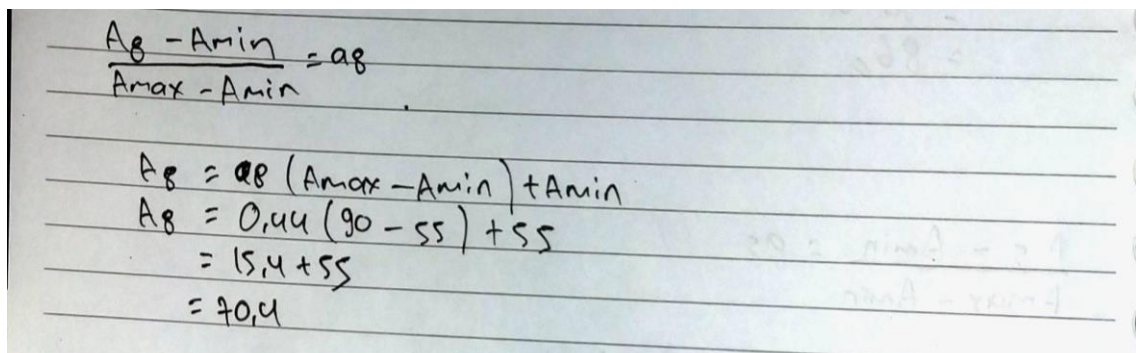 A8 - Amin = a8
Amax - Amin
A8 = a8 (Amax - Amin) + Amin
A8 = 0,44 (90 - 55) + 55
= 15,4 + 55
= 70,4